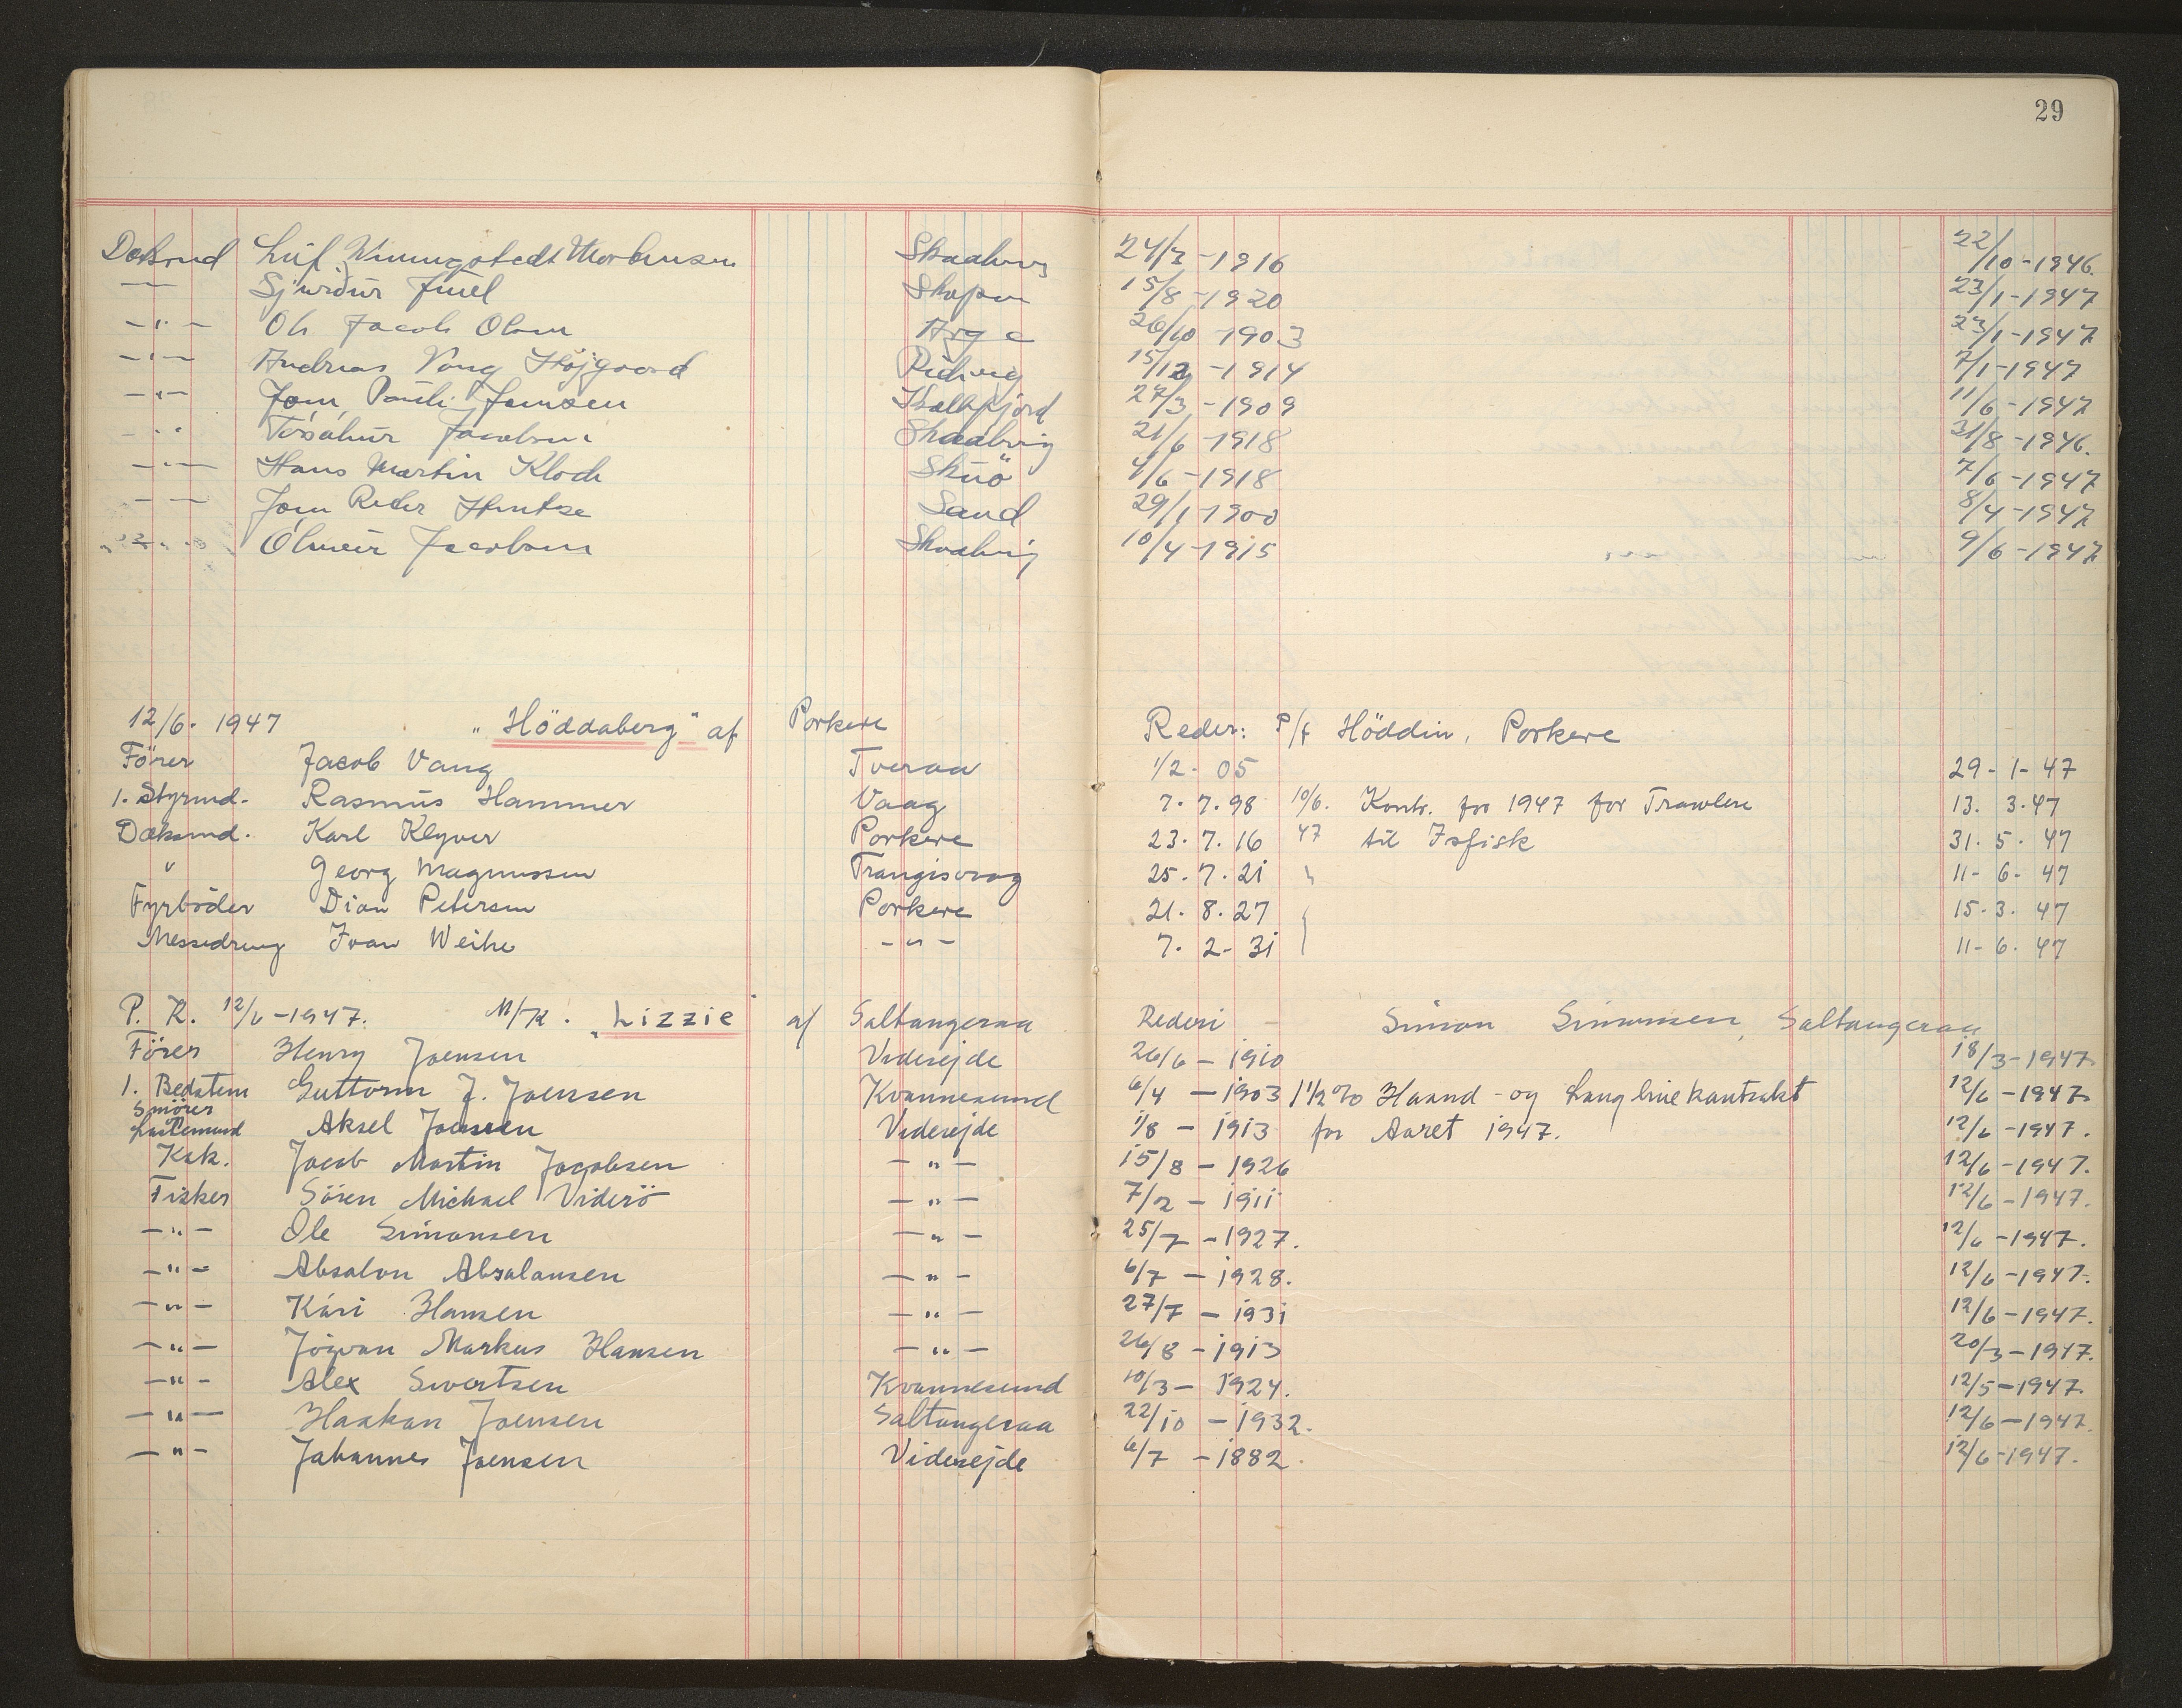 29
Deksmd Leif Winningstedt Mortensen Skaalevig 24/3 - 1916 22/10 - 1946.
— Sjúrdur Juel Skopun 15/8 - 1920 23/1 - 1947
- " - Ole Jacob Olsen Arge 26/10 - 1903 23/1 - 1947
- " - Andreas Vang Höjgaard 15/12 - 1914 7/1 - 1947
- " - Joen Pauli Joensen Kalbfjord 27/3 - 1909 11/6 - 1947
- " - Jacobsen Skaalevig 21/6 - 1918 31/8 - 1946.
- " - Hans Martin Kloch Skúö 4/6 - 1918 7/6 - 1947
- " - Joen Peder Hentze Sand 29/1 - 1900 8/4 - 1947
- " - Jacobsen Skaalevig 10/4 - 1915 9/6 - 1947
12/6. 1947 "Höddaberg" af Porkere Reder: P/f Höddin, Porkere
Förer Jacob Vang Tveraa 1/2 - 05 29 - 1 - 47
1. Styrmd. Rasmus Hammer Vaag 7. 7. 98 10/6. Kontr. for 1947 for Trawlere 13. 3. 47
Dæksmd. Karl Klyver Porkere 23. 7. 16 47 til Isfisk 31. 5. 47
" Georg Magnussen Trangisvaag 25. 7. 21 " 11 - 6 - 47
Fyrböder Dion Petersen Porkere 21. 8. 27 15. 3. 47
Messedreng Ivan Weihe - " - 7. 2 - 31 11 - 6. 47
P. K. 12/6 - 1947. M/K. "Lizzie" af Saltangeraa Rederi - Simon Simonsen, Saltangeraa
Förer Henry Joensen Viderejde 26/6 - 1910 18/3 - 1947
1. Bedstem Guttorm J. Joensen Kvannesund 6/4 - 1903 1 1/2 % Haand- og Langlinekontrakt 12/6 - 1947
Smörer
Lastemand Aksel Joensen Viderejde 1/8 - 1913 for Aaret 1947. 12/6 - 1947.
Kok. Jacob Martin Jacobsen - " - 15/8 - 1926 12/6 - 1947.
Fisker Sören Michael Viderö - " - 7/2 - 1911 12/6 - 1947.
- " - Ole Simonsen - " - 25/7 - 1927. 12/6 - 1947.
- " - Absalon Absalonsen - " - 6/7 - 1928. 12/6 - 1947.
- " - Kári Hansen - " - 27/7 - 1931 12/6 - 1947.
- " - Jógvan Markus Hansen - " - 26/8 - 1913 20/3 - 1947.
- " - Alex Sivertsen Kvannesund 10/3 - 1924. 12/5 - 1947.
- " - Haakon Joensen Saltangeraa 22/10 - 1932. 12/6 - 1947.
- " - Johannes Joensen Viderejde 6/7 - 1882. 12/6 - 1947.